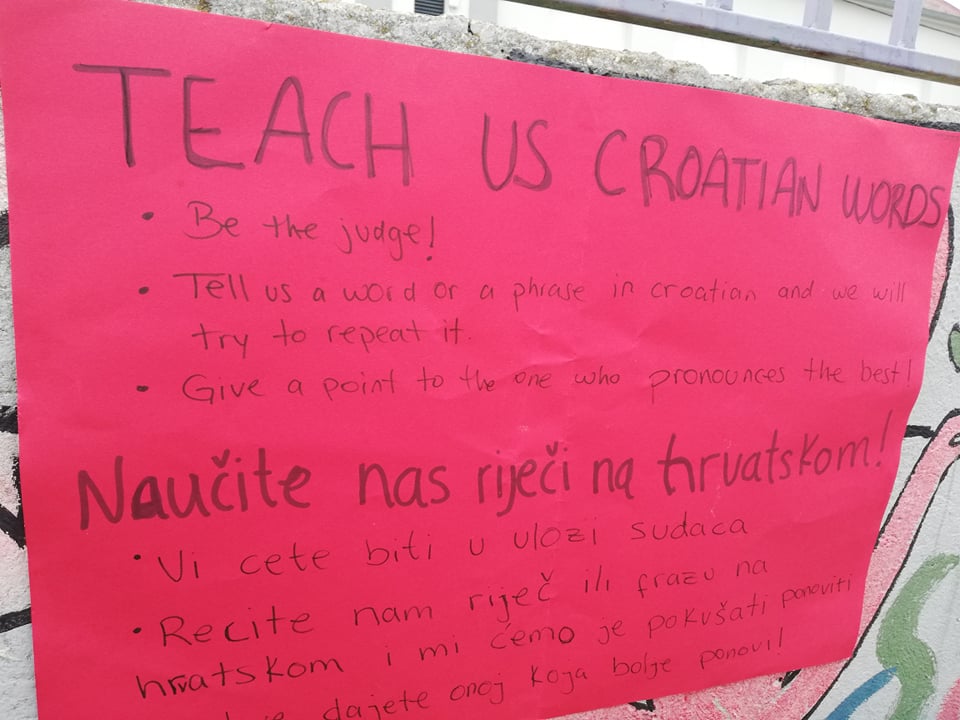 TEACH US CROATIAN WORDS
• Be the judge!
• Tell us a word or a phrase in croatian and we will
try to repeat it.
• Give a point to the one who pronounces the best!
Naučite nas riječi na hrvatskom!
• Vi cete biti u ulozi sudaca
• Recite nam riječ ili frazu na
hrvatskom i mi ćemo je pokušati ponoviti
dajete onoj koja bolje ponovi!